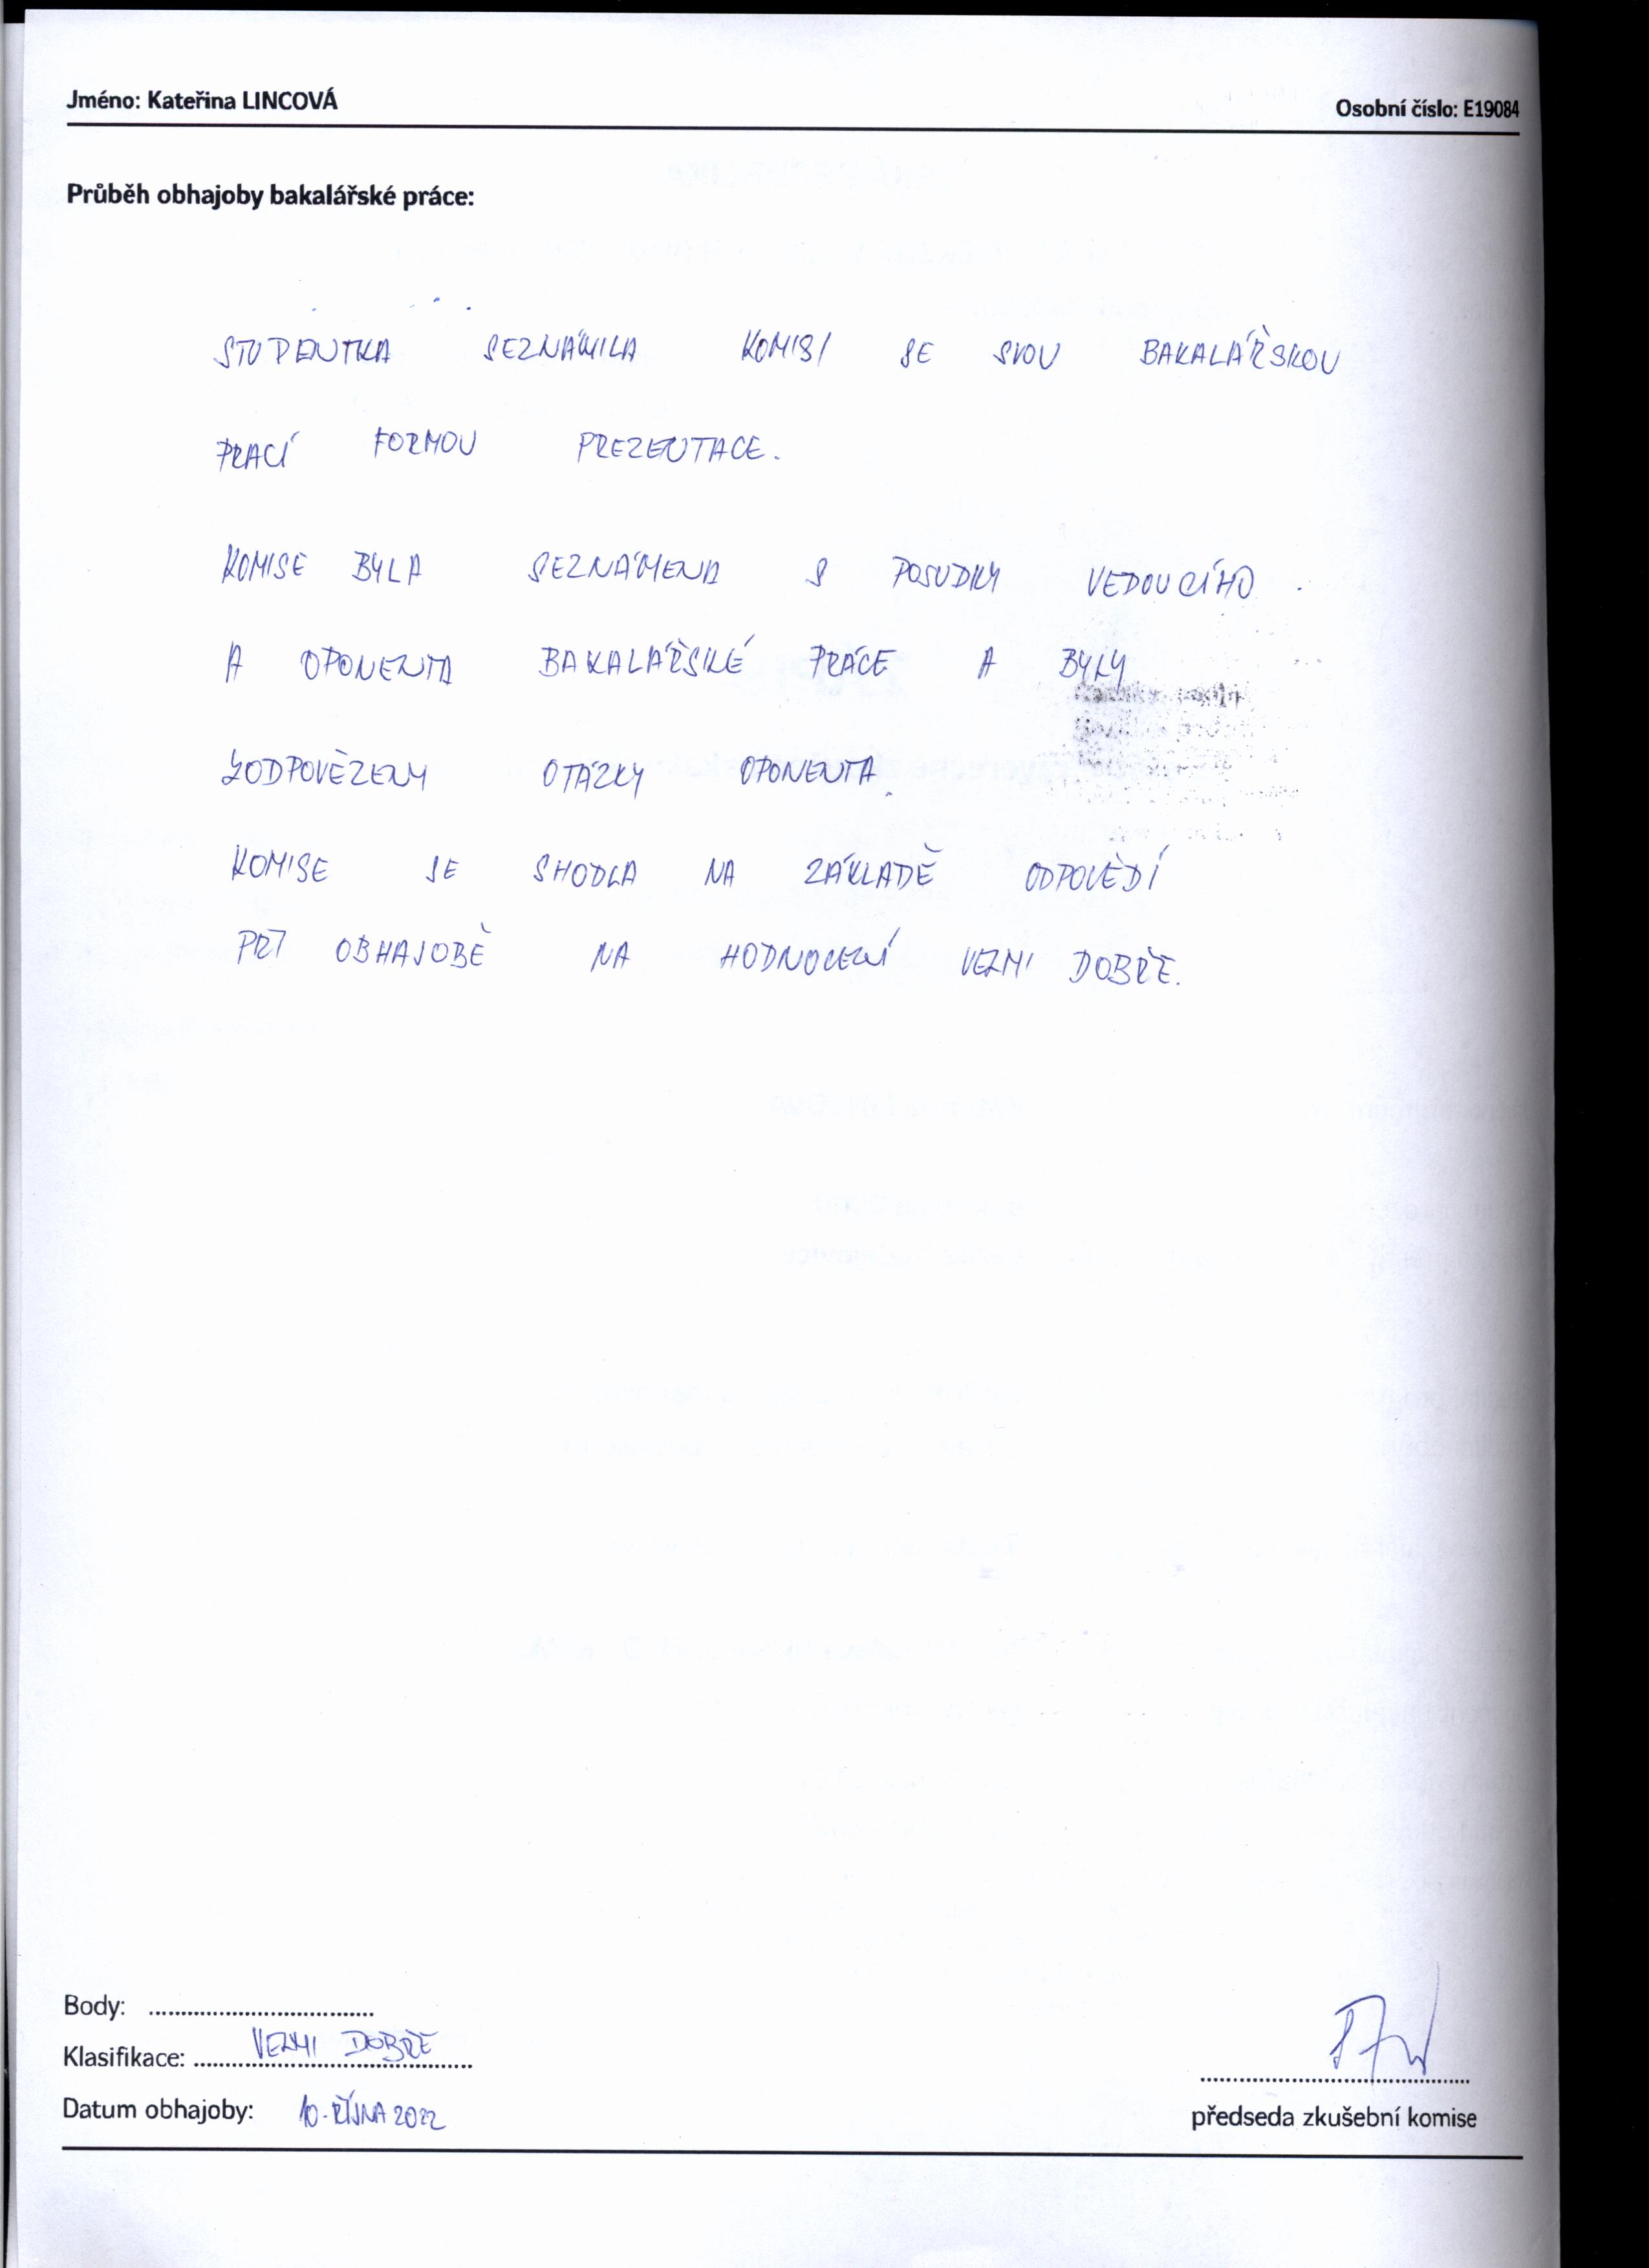 Jméno: Kateřina LINCOVÁ
Osobní číslo: E19084
Průběh obhajoby bakalářské práce:
STUDENTKA SEZNÁMILA KOMISI SE SVOU BAKALÁŘSKOU
PRACÍ FORMOU PREZENTACE.
KOMISE BYLA SEZNÁMENA S POSUDKY VEDOUCÍHO
A OPONENTA BAKALÁŘSKÉ PRÁCE A BYLY
ZODPOVĚZENY OTÁZKY OPONENTA.
KOMISE SE SHODLA NA ZÁKLADĚ ODPOVĚDÍ
PŘI OBHAJOBĚ NA HODNOCENÍ VELMI DOBŘE.
Body: ..................................
Klasifikace: VELMI DOBŘE
Datum obhajoby: 10. ŘÍJNA 2022
předseda zkušební komise